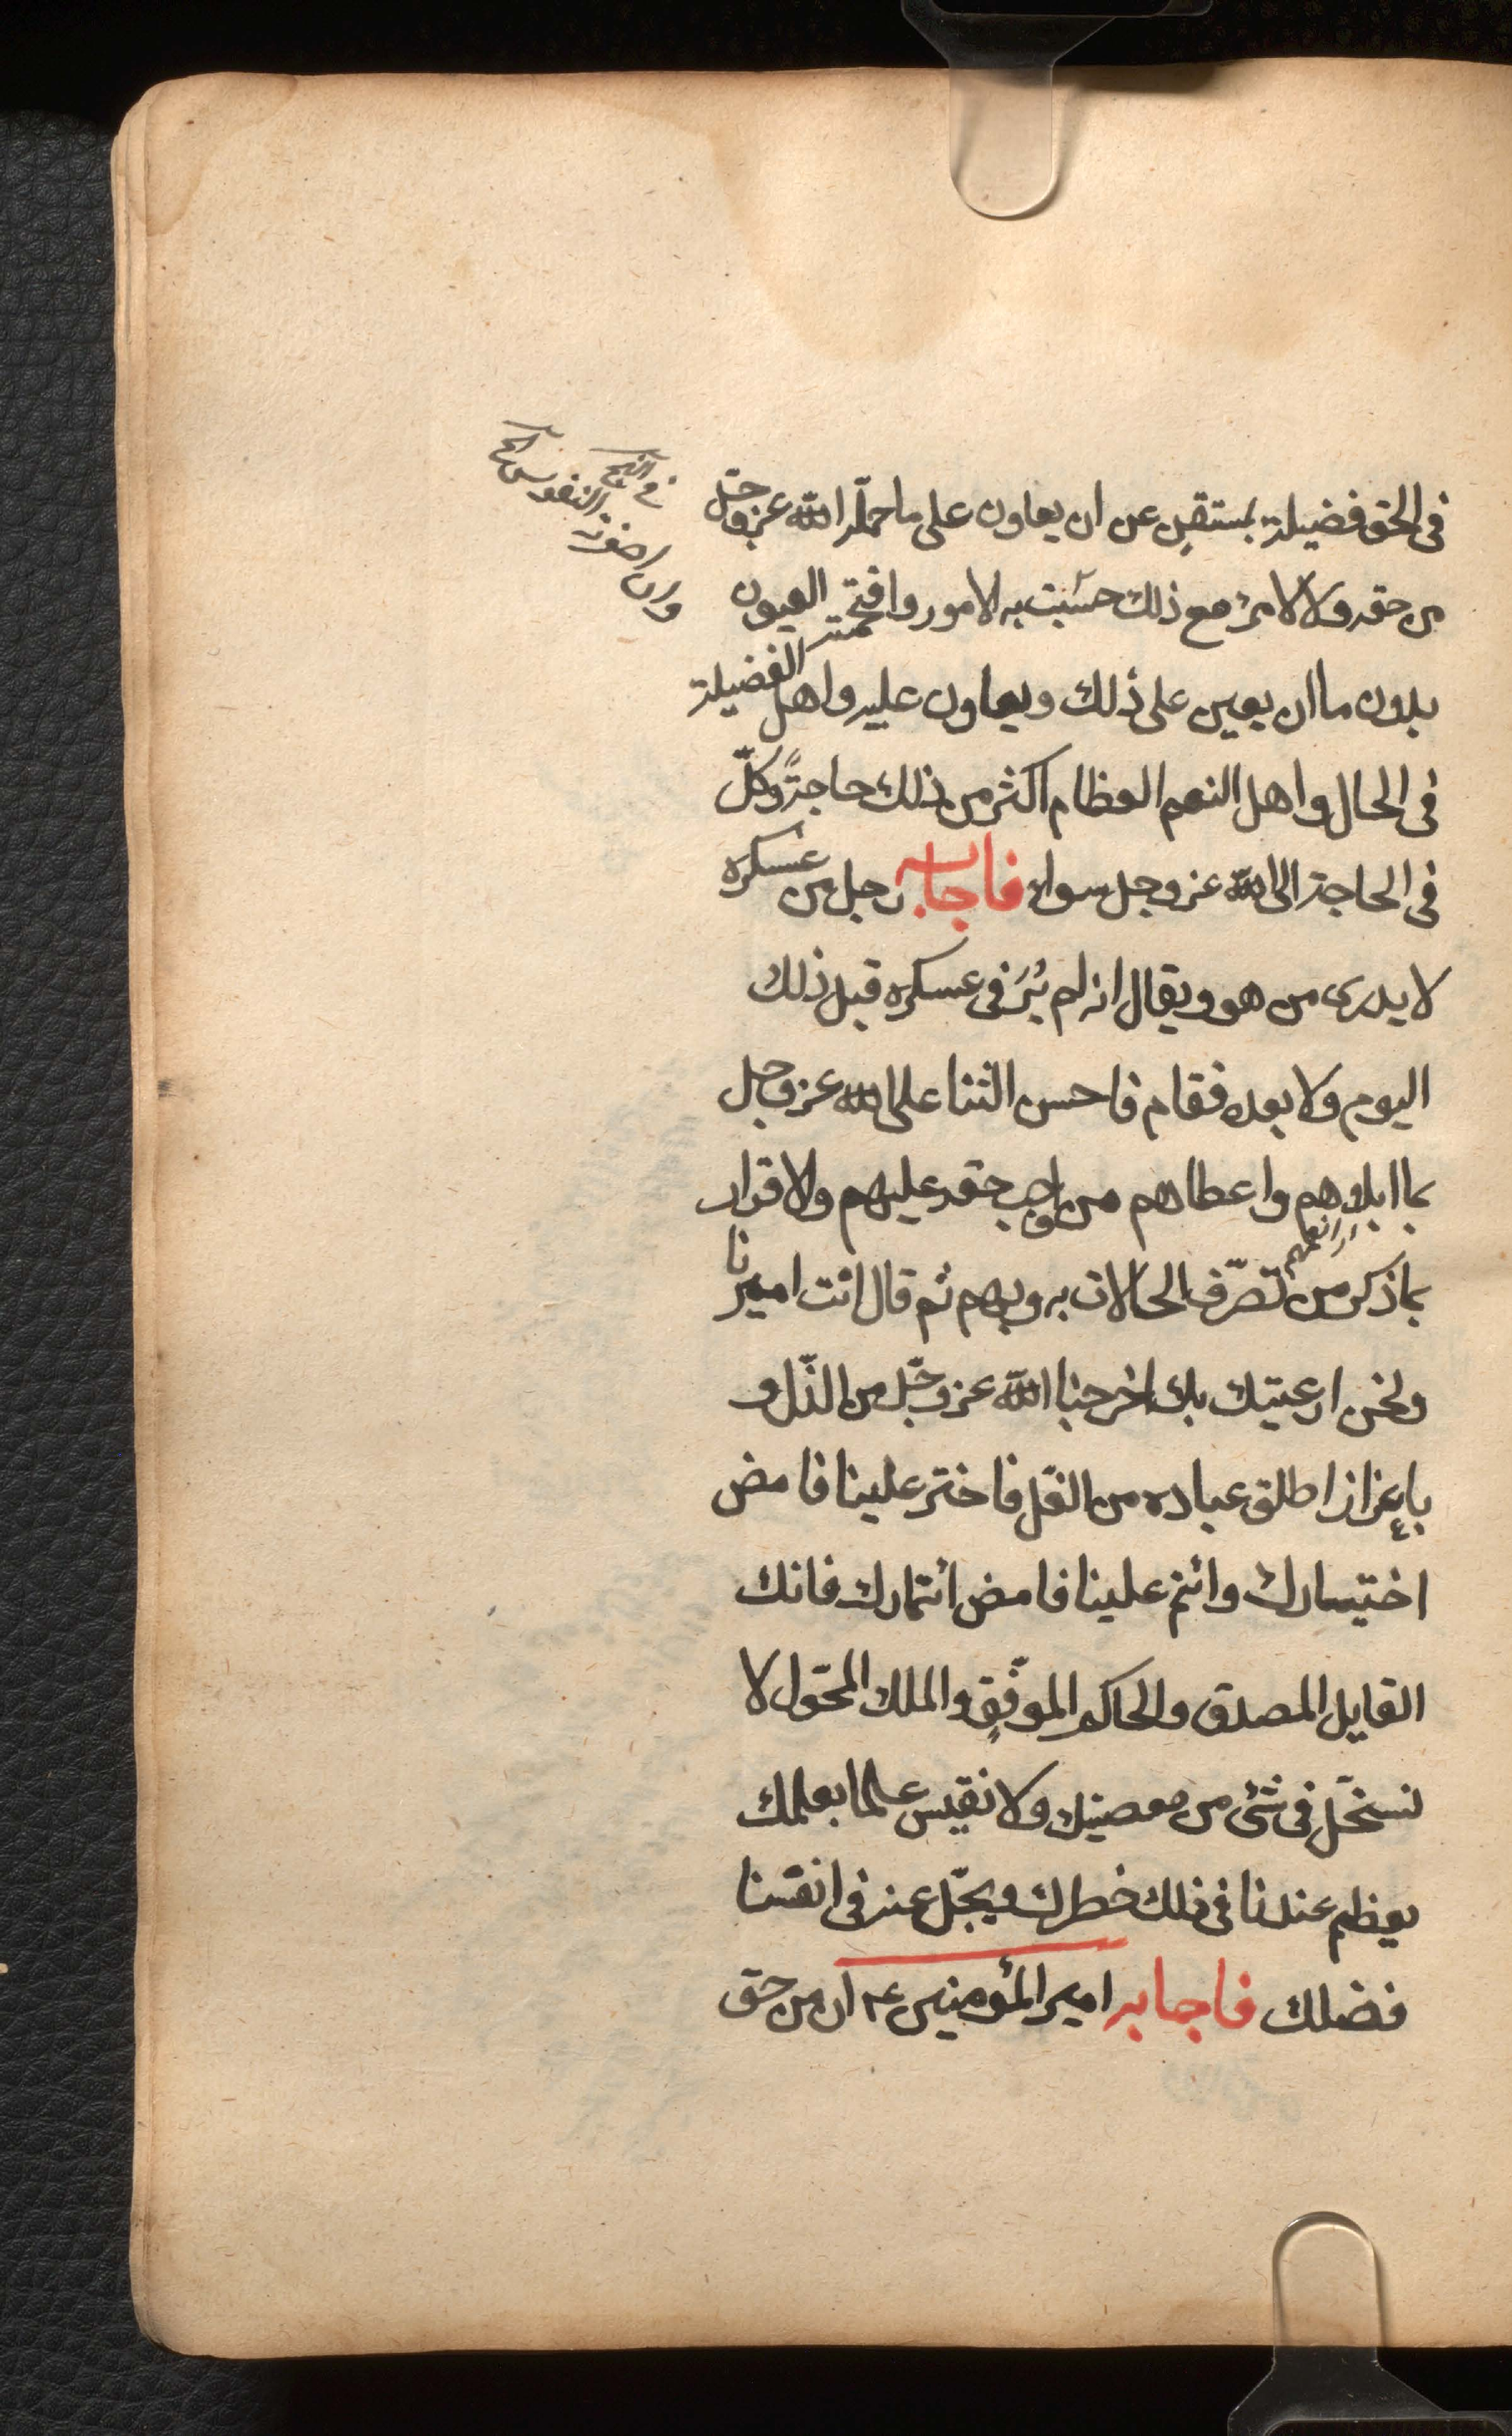 فى الحق فضيلته بمستقبن عن ان يعاون على ما حمله الله عز وجل
من حقه ولا لامرئ مع ذلك حسّبت به الامور واقتحمته العيون
بدون ما ان يعين على ذلك ويعاون عليه واهل الفضيلة
فى الحال واهل النعم العظام اكثر من ذلك حاجةً وكلّ
فى الحاجة الى الله عز وجل سواء فاجابه رجل من عسكره
لا يدرى من هو ويقال انه لم يُرَ فى عسكره قبل ذلك
اليوم ولا بعده فقام فاحسن الثنا على الله عز وجل
بما ابلاهم واعطاهم من واجب حقه عليهم والاقرار
بما ذكر من تصرّف الحالات به وبهم ثم قال انت اميرنا
ونحن رعيتك بك اخرجنا الله عز وجلّ من الذّل و
باعزاز اطلق عباده من الغلّ فاختر علينا فامض
اختيارك وائتمر علينا فامض ائتمارك فانك
القايل المصدق والحاكم الموفّق والملك المخوّل لا
نستحلّ فى شئ من معصيتك ولا نقيس علما بعلمك
يعظم عندنا فى ذلك خطرك ويجلّ عنه فى انفسنا
فضلك فاجابه امير المؤمنين ع ان من حق
فى النهج
وان صغرته النفوس الخ